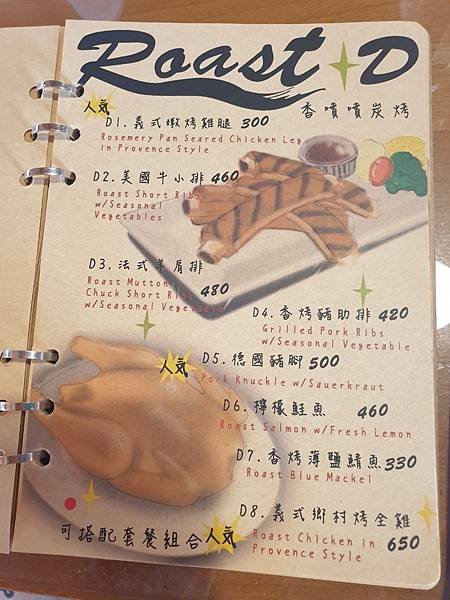 Roast D
香噴噴炭烤
人氣
D1. 義式嫩烤雞腿 300
Rosemery Pan Seared Chicken Leg
in Provence Style
D2. 美國牛小排 460
Roast Short Ribs
w/Seasonal
Vegetables
D3. 法式羊肩排
Roast Mutton
Chuck Short Ribs 480
w/Seasonal Vegetable
D4. 香烤豬肋排 420
Grilled Pork Ribs
w/Seasonal Vegetable
人氣
D5. 德國豬腳 500
Pork Knuckle w/Sauerkraut
D6. 檸檬鮭魚 460
Roast Salmon w/Fresh Lemon
D7. 香烤薄鹽鯖魚 330
Roast Blue Mackel
人氣
D8. 義式鄉村烤全雞
Roast Chicken in 650
Provence Style
可搭配套餐組合